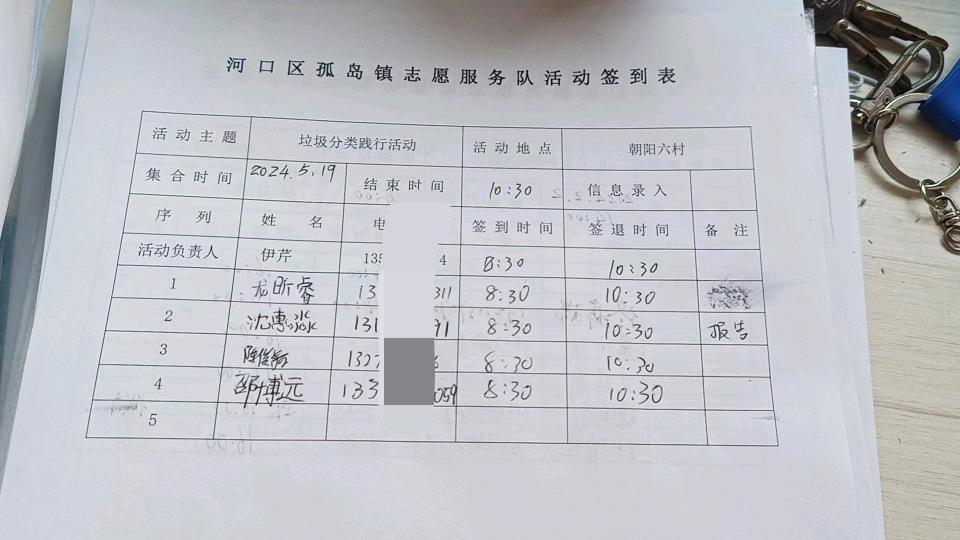 河口区孤岛镇志愿服务队活动签到表
活动主题 垃圾分类践行活动 活动地点 朝阳六村
集合时间 2024.5.19 结束时间 10:30 信息录入
序列 姓名 电 签到时间 签退时间 备注
活动负责人 伊芹 135 4 8:30 10:30
1 龙昕睿 13 311 8:30 10:30
2 沈惠淼 131 91 8:30 10:30 报告
3 1327 6 8:30 10:30
4 邵博元 133 059 8:30 10:30
5